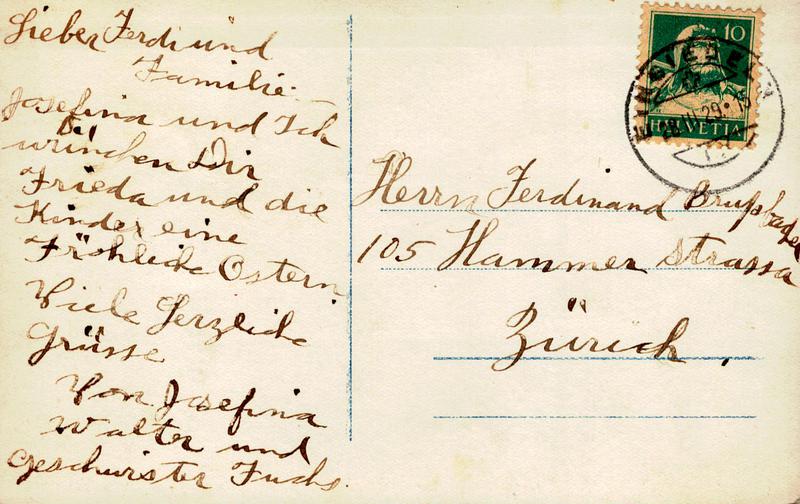 Lieber Ferdi und
Familie.
Josefina und Ich
wünchen Dir
Frieda und die
Kinder eine
Fröhliche Ostern.
Viele Herzliche
Grüsse
Von Josefina
Walter und
geschwister Fuchs.
10
HELVETIA
EINSIEDELN
28.III.29.15
Herrn Ferdinand
105 Hammer Strassa
Zürich,